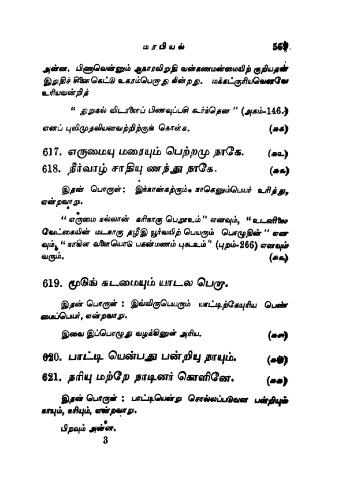 மரபியல் 563
அன்ன. பிணவென்னும் ஆகாரவிறுதி வன்கணமன்மையிற் குறியதன்
இறுதிச் சினைகெட்டு உகரம்பெருது கின்றது. மக்கட்குரியவெனவே
உரியவன்றித்
“ துறுகல் விடரளைப் பிணவுப்பசி கூர்ந்தென ” (அகம்-146.)
எனப் புலிமுதலியனவற்றிற்குங் கொள்க. (௬௧)
617. எருமையு மரையும் பெற்றமு நாகே. (௬௨)
618. நீர்வாழ் சாதியு ணந்து நாகே. (௬௩)
இதன் பொருள்: இக்கான்கற்கும் நாகெனும்பெயர் உரித்து,
என்றவாறு.
“ எருமை நல்லான் கருநாகு பெறூஉம் ” எனவும், “ உடனிலை
வேட்கையின் மடநாகு தழீஇ யூர்வயிற் பெயரும் பொழுதின் ” என
வும், “ நாகிள வளையொடு பகன்மணம் புகூஉம் ” (புறம்-266) எனவும்
வரும்.
619. மூடுங் கடமையும் யாடல பெறா.
இதன் பொருள் : இவ்விருபெயரும் யாட்டிற்கேயுரிய பெண்
மைப்பெயர், என்றவாறு.
இவை இப்பொழுது வழக்கினுள் அரிய. (௬௪)
620. பாட்டி யென்பது பன்றியு நாயும். (௬௫)
621. நரியு மற்றே நாடினர் கொளினே. (௬௬)
இதன் பொருள் : பாட்டியென்று சொல்லப்படுவன பன்றியும்
நாயும், நரியும், என்றவாறு.
பிறவும் அன்ன.
3